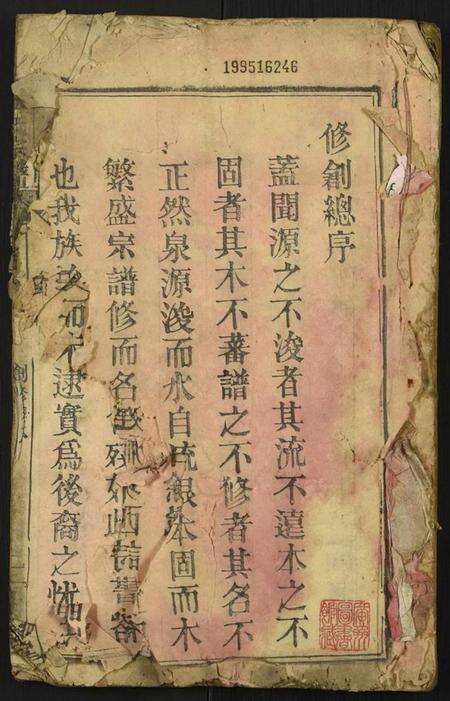 199516246
修創總序
蓋聞源之不浚者其流不遠本之不
固者其木不蕃譜之不修者其名不
正然泉源浚而水自流根本固而木
繁盛宗譜修而名
也我族 而不逮實為後裔之